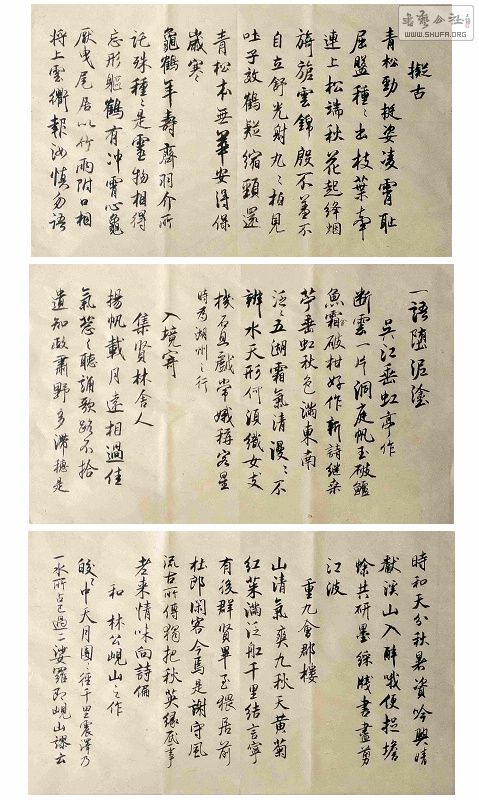 書藝公社
WWW.SHUFA.ORG
擬古
青松勁挺姿凌霄恥
屈盤種々出枝葉牽
連上松端秋花起絳烟
旖旎雲錦殷不羞不
自立舒光射丸々柏見
吐子效鶴疑縮頸還
青松本無華安得保
歲寒
龜鶴年壽齊羽介所
託殊種々是靈物相得
忘形軀鶴有冲霄心龜
厭曳尾居以竹兩附口相
將上雲衢報汝慎勿語
一語墮泥塗
吳江垂虹亭作
斷雲一片洞庭帆玉破鱸
魚霜破柑好作新詩繼桑
苧垂虹秋色滿東南
泛々五湖霜氣清漫々不
辨水天形何須織女支
機石且戲常娥稱客星
時為湖州之行
入境寄
集賢林舍人
揚帆載月遠相過佳
氣蔥々聽誦歌路不拾
遺知政肅野多滯穗是
時和天分秋暑資吟興晴
獻溪山入醉哦便捉蟾
蜍共研墨綵牋書盡剪
江波
重九會郡樓
山清氣爽九秋天黃菊
紅茱滿泛船千里結言寧
有後群賢畢至猥居前
杜郎閑客今焉是謝守風
流古所傳獨把秋英緣底事
老來情味向詩偏
和林公峴山之作
皎々中天月團々徑千里震澤乃
一水所占已過二娑羅即峴山謬云